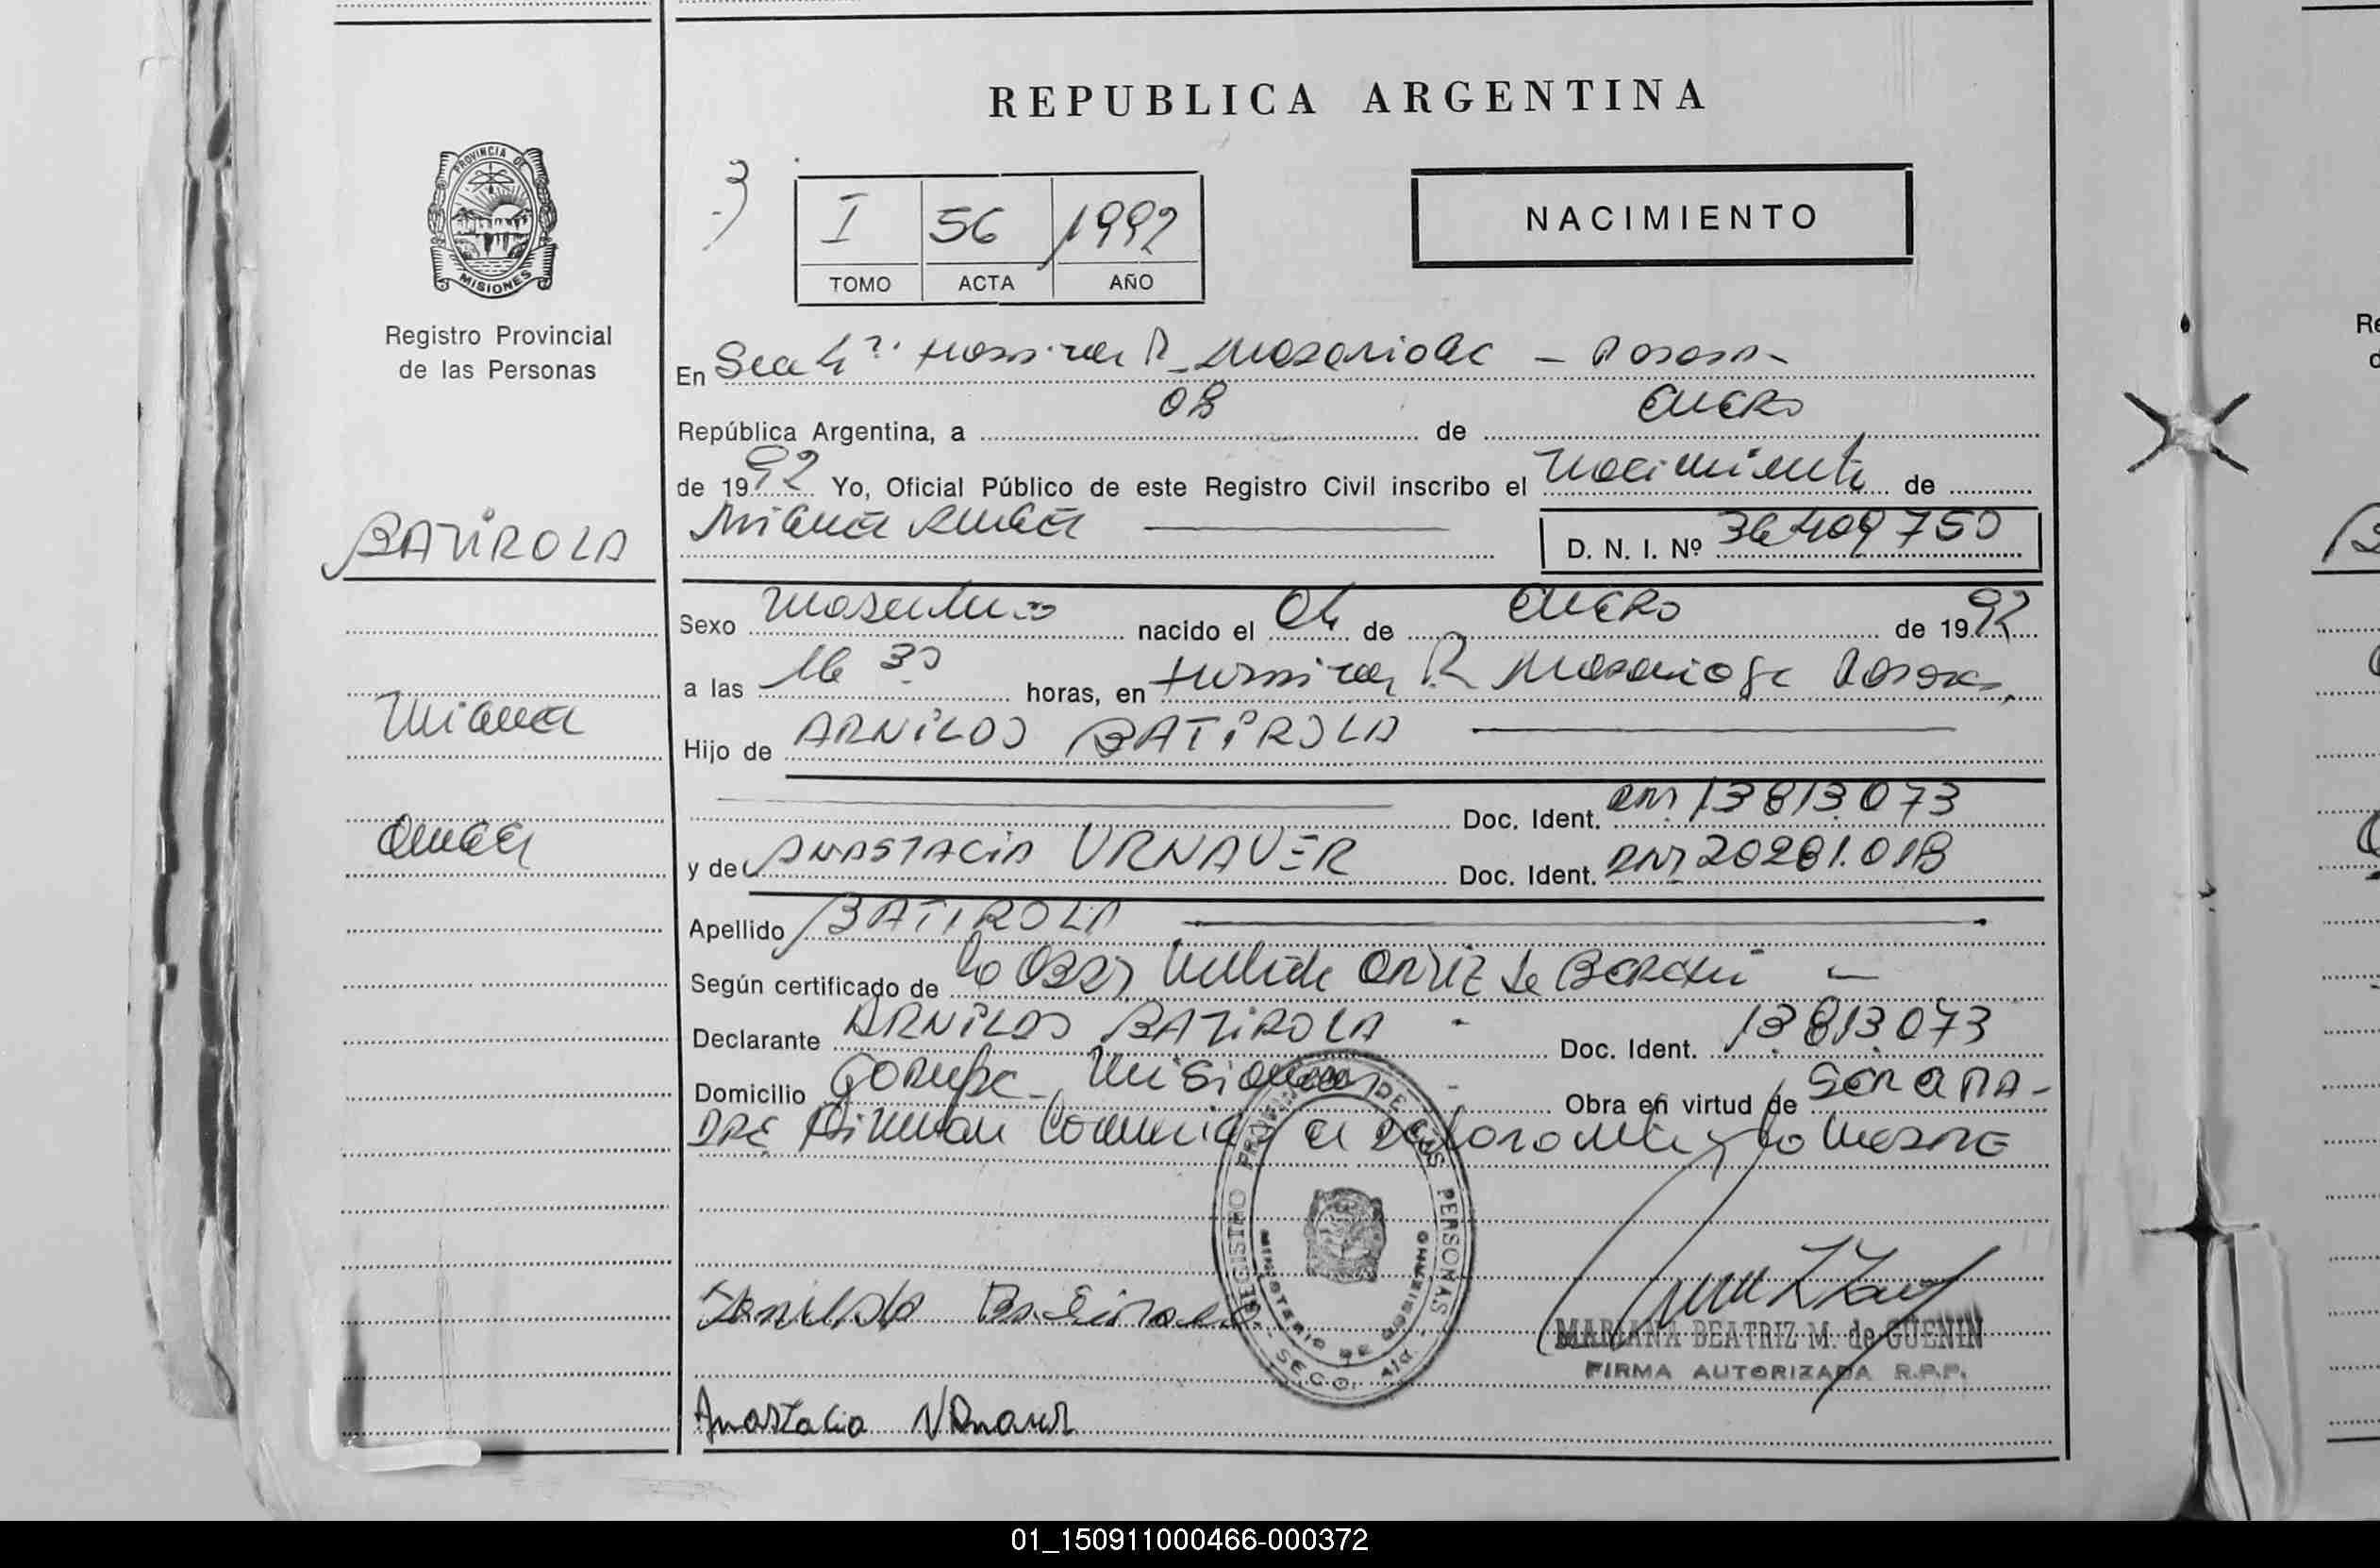 REPUBLICA ARGENTINA
PROVINCIA DE
MISIONES
Registro Provincial
de las Personas
3)
I 56 1992
TOMO ACTA AÑO
NACIMIENTO
En Sec
República Argentina, a 08 de Enero
de 1992 Yo, Oficial Público de este Registro Civil inscribo el nacimiento de
Miguel
D. N. I. Nº 36409750
BATIROLA
Sexo masculino nacido el 04 de Enero de 1992
a las 16 30 horas, en Posadas
Miguel
Hijo de ARNILDO BATIROLA
Doc. Ident. DNI 13813.073
y de ANASTACIA URNAUER Doc. Ident. DNI 20281.018
Apellido BATIROLA
Según certificado de la Obst
Declarante ARNILDO BATIROLA Doc. Ident. 13.813.073
Domicilio Garupá Misiones Obra en virtud de SER PA-
DRE firman la madre
REGISTRO PROVINCIAL DE LAS PERSONAS
MINISTERIO DE GOBIERNO
Batirola
MARIANA BEATRIZ M. de GUENIN
FIRMA AUTORIZADA R.P.P.
Anastacia Urnauer
01_150911000466-000372